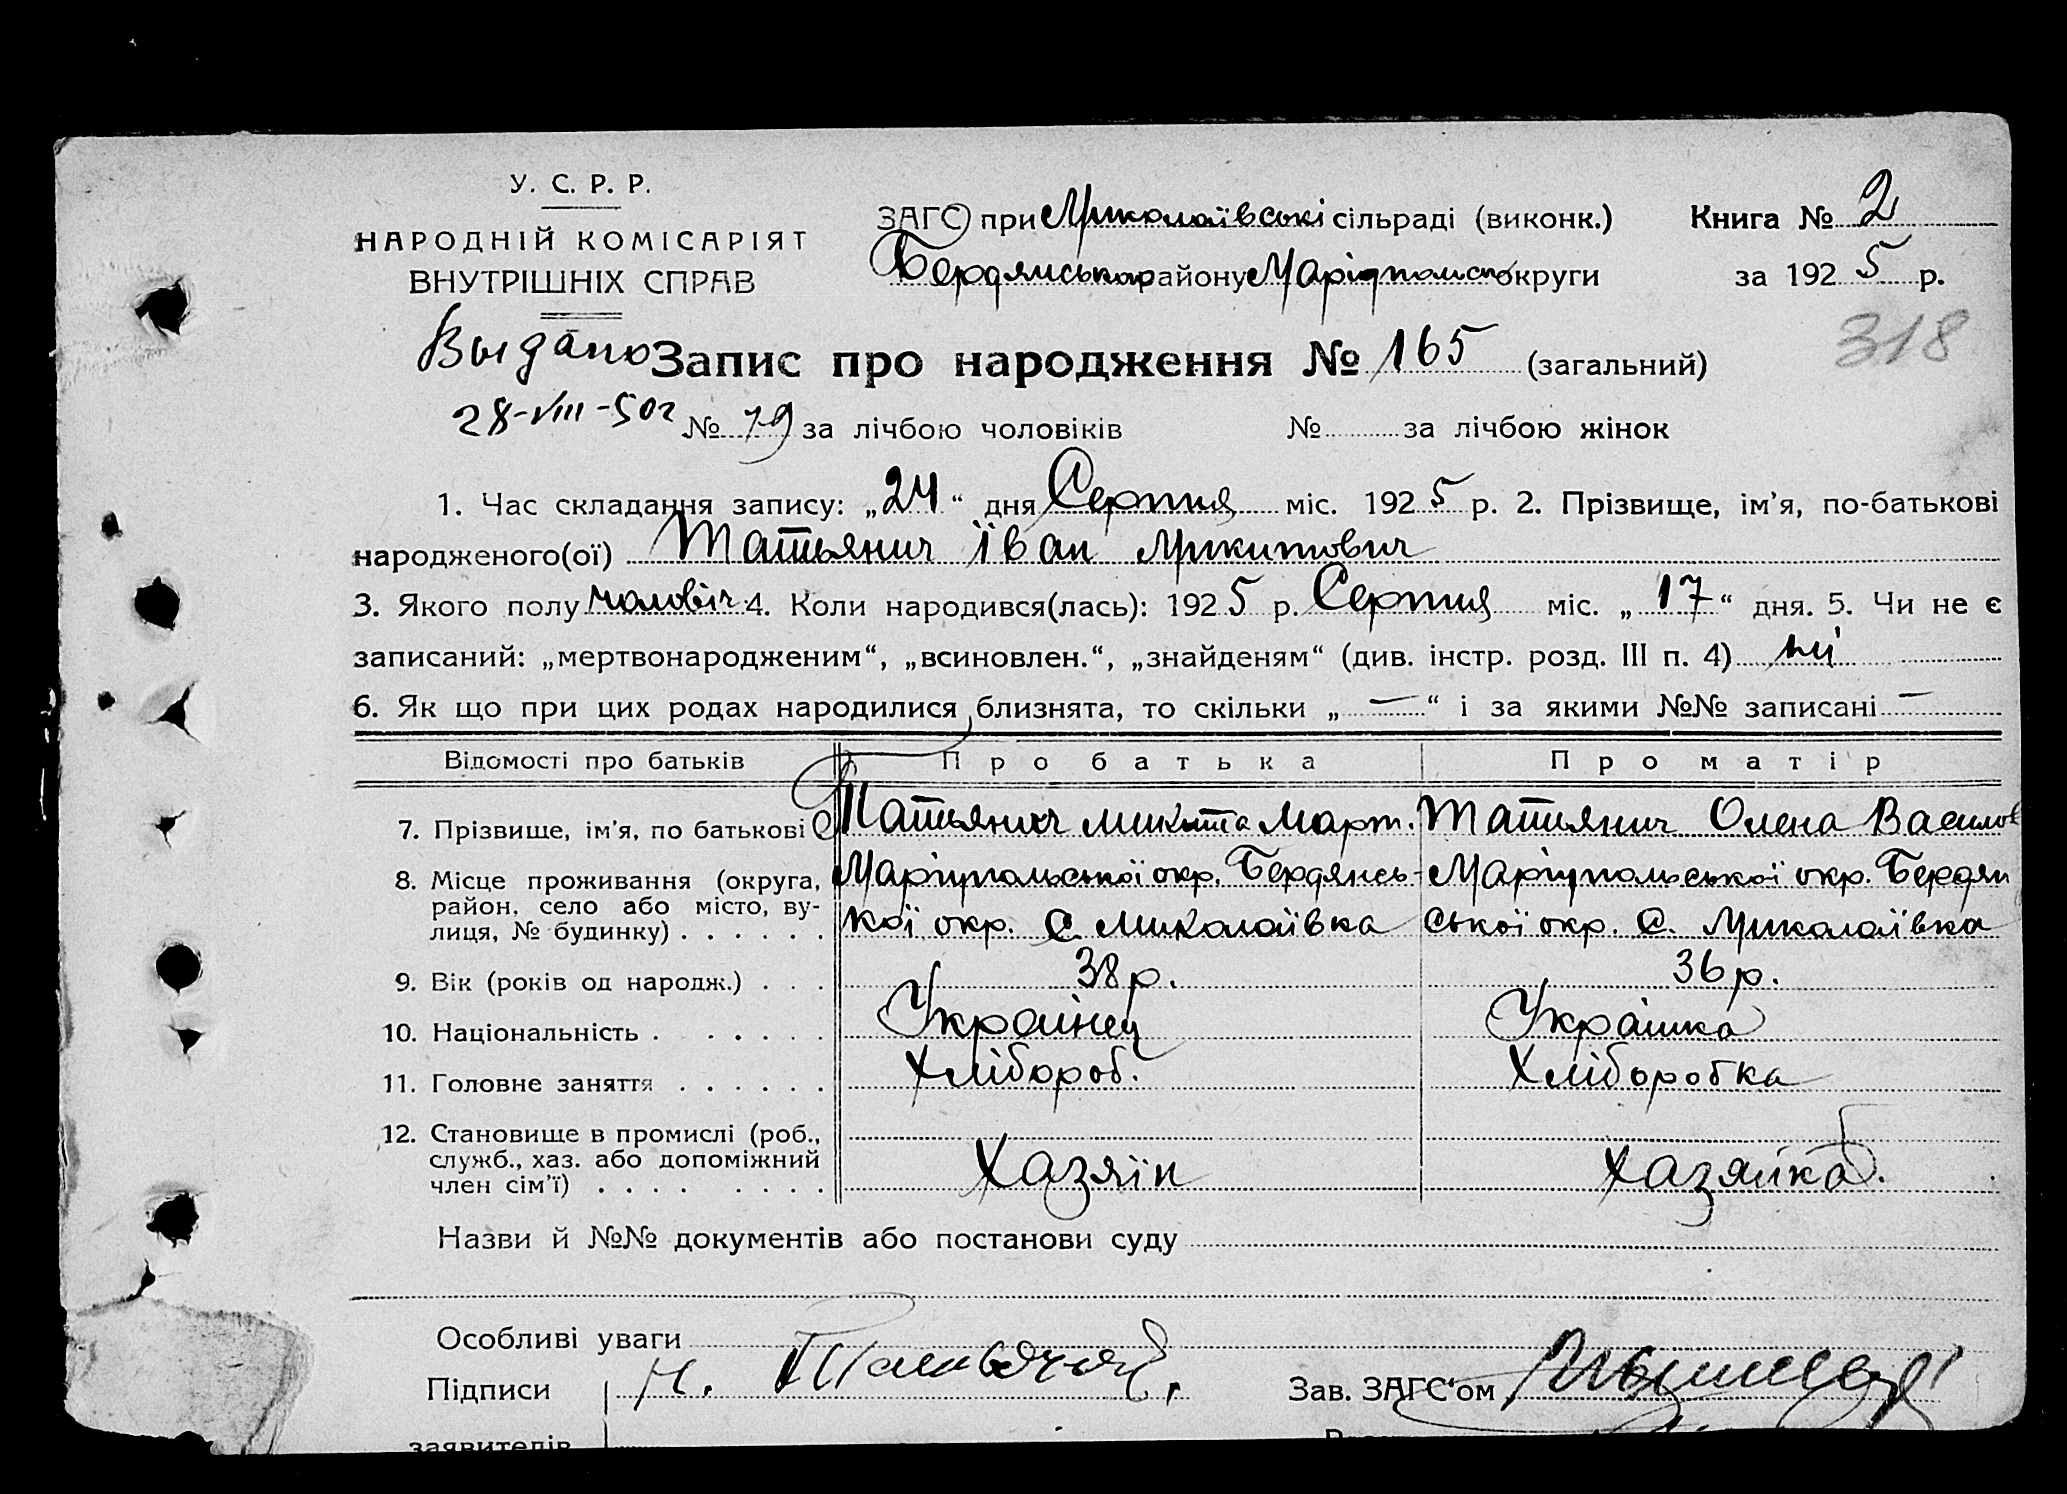 У. С. Р. Р.
НАРОДНІЙ КОМІСАРІЯТ
ВНУТРІШНІХ СПРАВ
ЗАГС при Миколаївські сільраді (виконк.) Книга № 2
Бердянського району Маріупольсько округи за 1925 р.
318
Выдано Запис про народження № 165 (загальний)
28-VIII-50г № 79 за лічбою чоловіків № за лічбою жінок
1. Час складання запису: „24“ дня Серпня міс. 1925 р. 2. Прізвище, ім'я, по-батькові
народженого(ої) Татьянич Їван Микитович
3. Якого полу чоловіч 4. Коли народився(лась): 1925 р. Серпня міс. „17“ дня. 5. Чи не є
записаний: „мертвонародженим“, „всиновлен.“, „знайденям“ (див. інстр. розд. III п. 4) ні
6. Як що при цих родах народилися близнята, то скільки „—“ і за якими №№ записані —
Відомості про батьків Про батька Про матір
7. Прізвище, ім'я, по батькові Татьянич Микита Март. Татьянич Олена Васильов
8. Місце проживання (округа, район, село або місто, вулиця, № будинку) . . . . . . Маріупольської окр. Бердянсь- Маріупольської окр. Бердян
кої окр. с. Миколаївка ської окр. с. Миколаївка
9. Вік (років од народж.) . . . 38 р. 36 р.
10. Національність . . . . . . Українец Українка
11. Головне заняття . . . . . . Хлібороб. Хліборобка
12. Становище в промислі (роб., служб., хаз. або допоміжний член сім'ї) . . . . . . . . Хазяїн Хазяйка.
Назви й №№ документів або постанови суду
Особливі уваги
Підписи Зав. ЗАГС'ом
заявителів